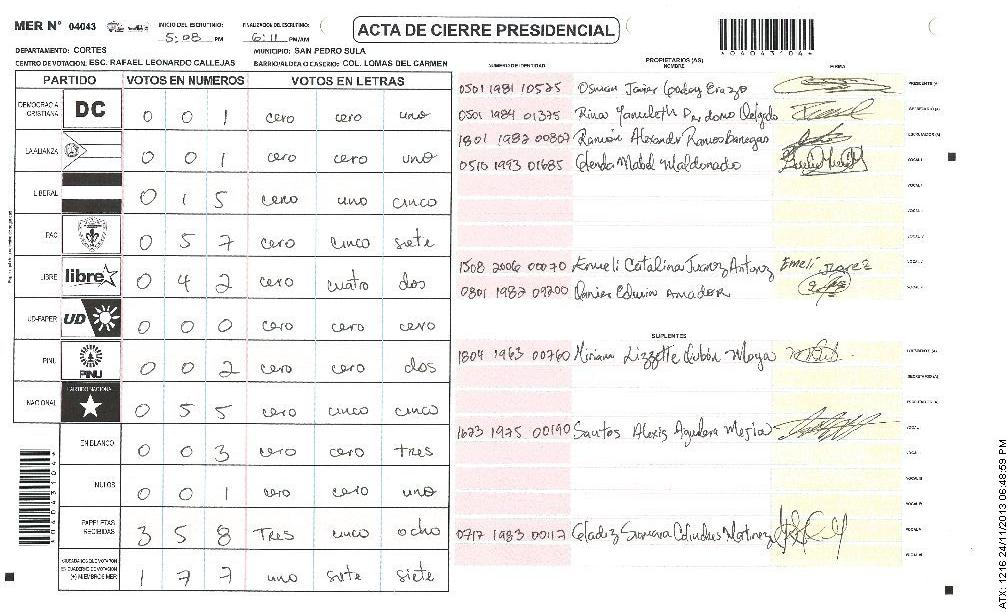 MER N° 04043
INICIO DEL ESCRUTINIO: 5:08 PM
FINALIZACION DEL ESCRUTINIO: 6:11 PM/AM
ACTA DE CIERRE PRESIDENCIAL
*04043104*
DEPARTAMENTO: CORTES
MUNICIPIO: SAN PEDRO SULA
CENTRO DE VOTACION: ESC. RAFAEL LEONARDO CALLEJAS
BARRIO/ALDEA O CASERIO: COL. LOMAS DEL CARMEN
PARTIDO VOTOS EN NUMEROS VOTOS EN LETRAS
DEMOCRACIA CRISTIANA DC 0 0 1 cero cero uno
LA ALIANZA 0 0 1 cero cero uno
LIBERAL 0 1 5 cero uno cinco
PAC 0 5 7 cero cinco siete
LIBRE libre 0 4 2 cero cuatro dos
UD-FAPER UD 0 0 0 cero cero cero
PINU PINU 0 0 2 cero cero dos
NACIONAL PARTIDO NACIONAL 0 5 5 cero cinco cinco
EN BLANCO 0 0 3 cero cero tres
NULOS 0 0 1 cero cero uno
PAPELETAS RECIBIDAS 3 5 8 Tres cinco ocho
CIUDADANOS QUE VOTARON EN CUADERNO DE VOTACION (+) MIEMBROS MER 1 7 7 uno siete siete
*04043104*
NUMERO DE IDENTIDAD PROPIETARIOS (AS) NOMBRE FIRMA
0501 1981 10525 Osman Javier Godoy Erazo PRESIDENTE (A)
0501 1984 01375 Rina Perdomo Delgado SECRETARIO (A)
1801 1982 00807 Ramón Alexander Ramos Banegas ESCRUTADOR (A)
0510 1993 01685 Glenda Mabel Maldonado VOCAL I
1508 2006 00070 Emeli Catalina Juarez Emeli Juarez
0801 1982 09200 Edwin Amador
SUPLENTES
1804 1963 00760 Miriam Lizzette Cubón Moya PRESIDENTE (A)
SECRETARIO (A)
ESCRUTADOR (A)
1623 1975 00190 Santos Alexis Aguilera Mejia VOCAL I
0717 1983 00117 Martinez
ATX: 1216 24/11/2013 06:48:59 PM